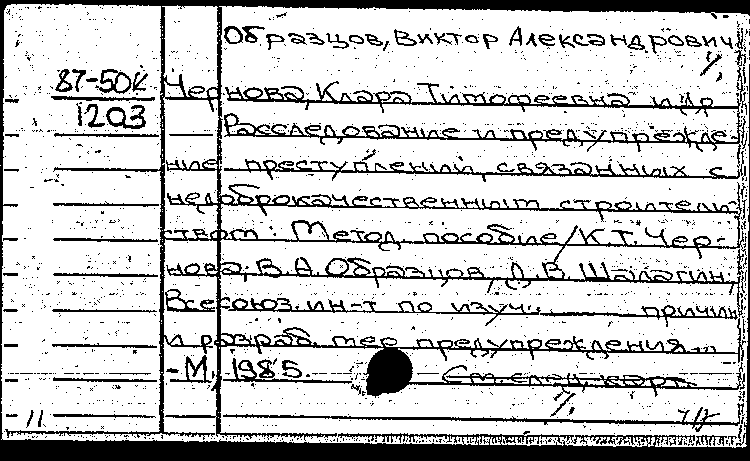 Образцов, Виктор Александрович
87-50К
1203
Чернова, Клара Тимофеевна и др
Расследование и предупрежде-
ние преступлений, связанных с
недоброкачественным строитель-
ством: Метод. пособие / К.Т. Чер-
нова, В.А. Образцов, Д.В. Шалагин,
Всесоюз. ин-т по изуч. причин
и разраб. мер предупреждения...
- М., 1985.
См. след. карт.
11